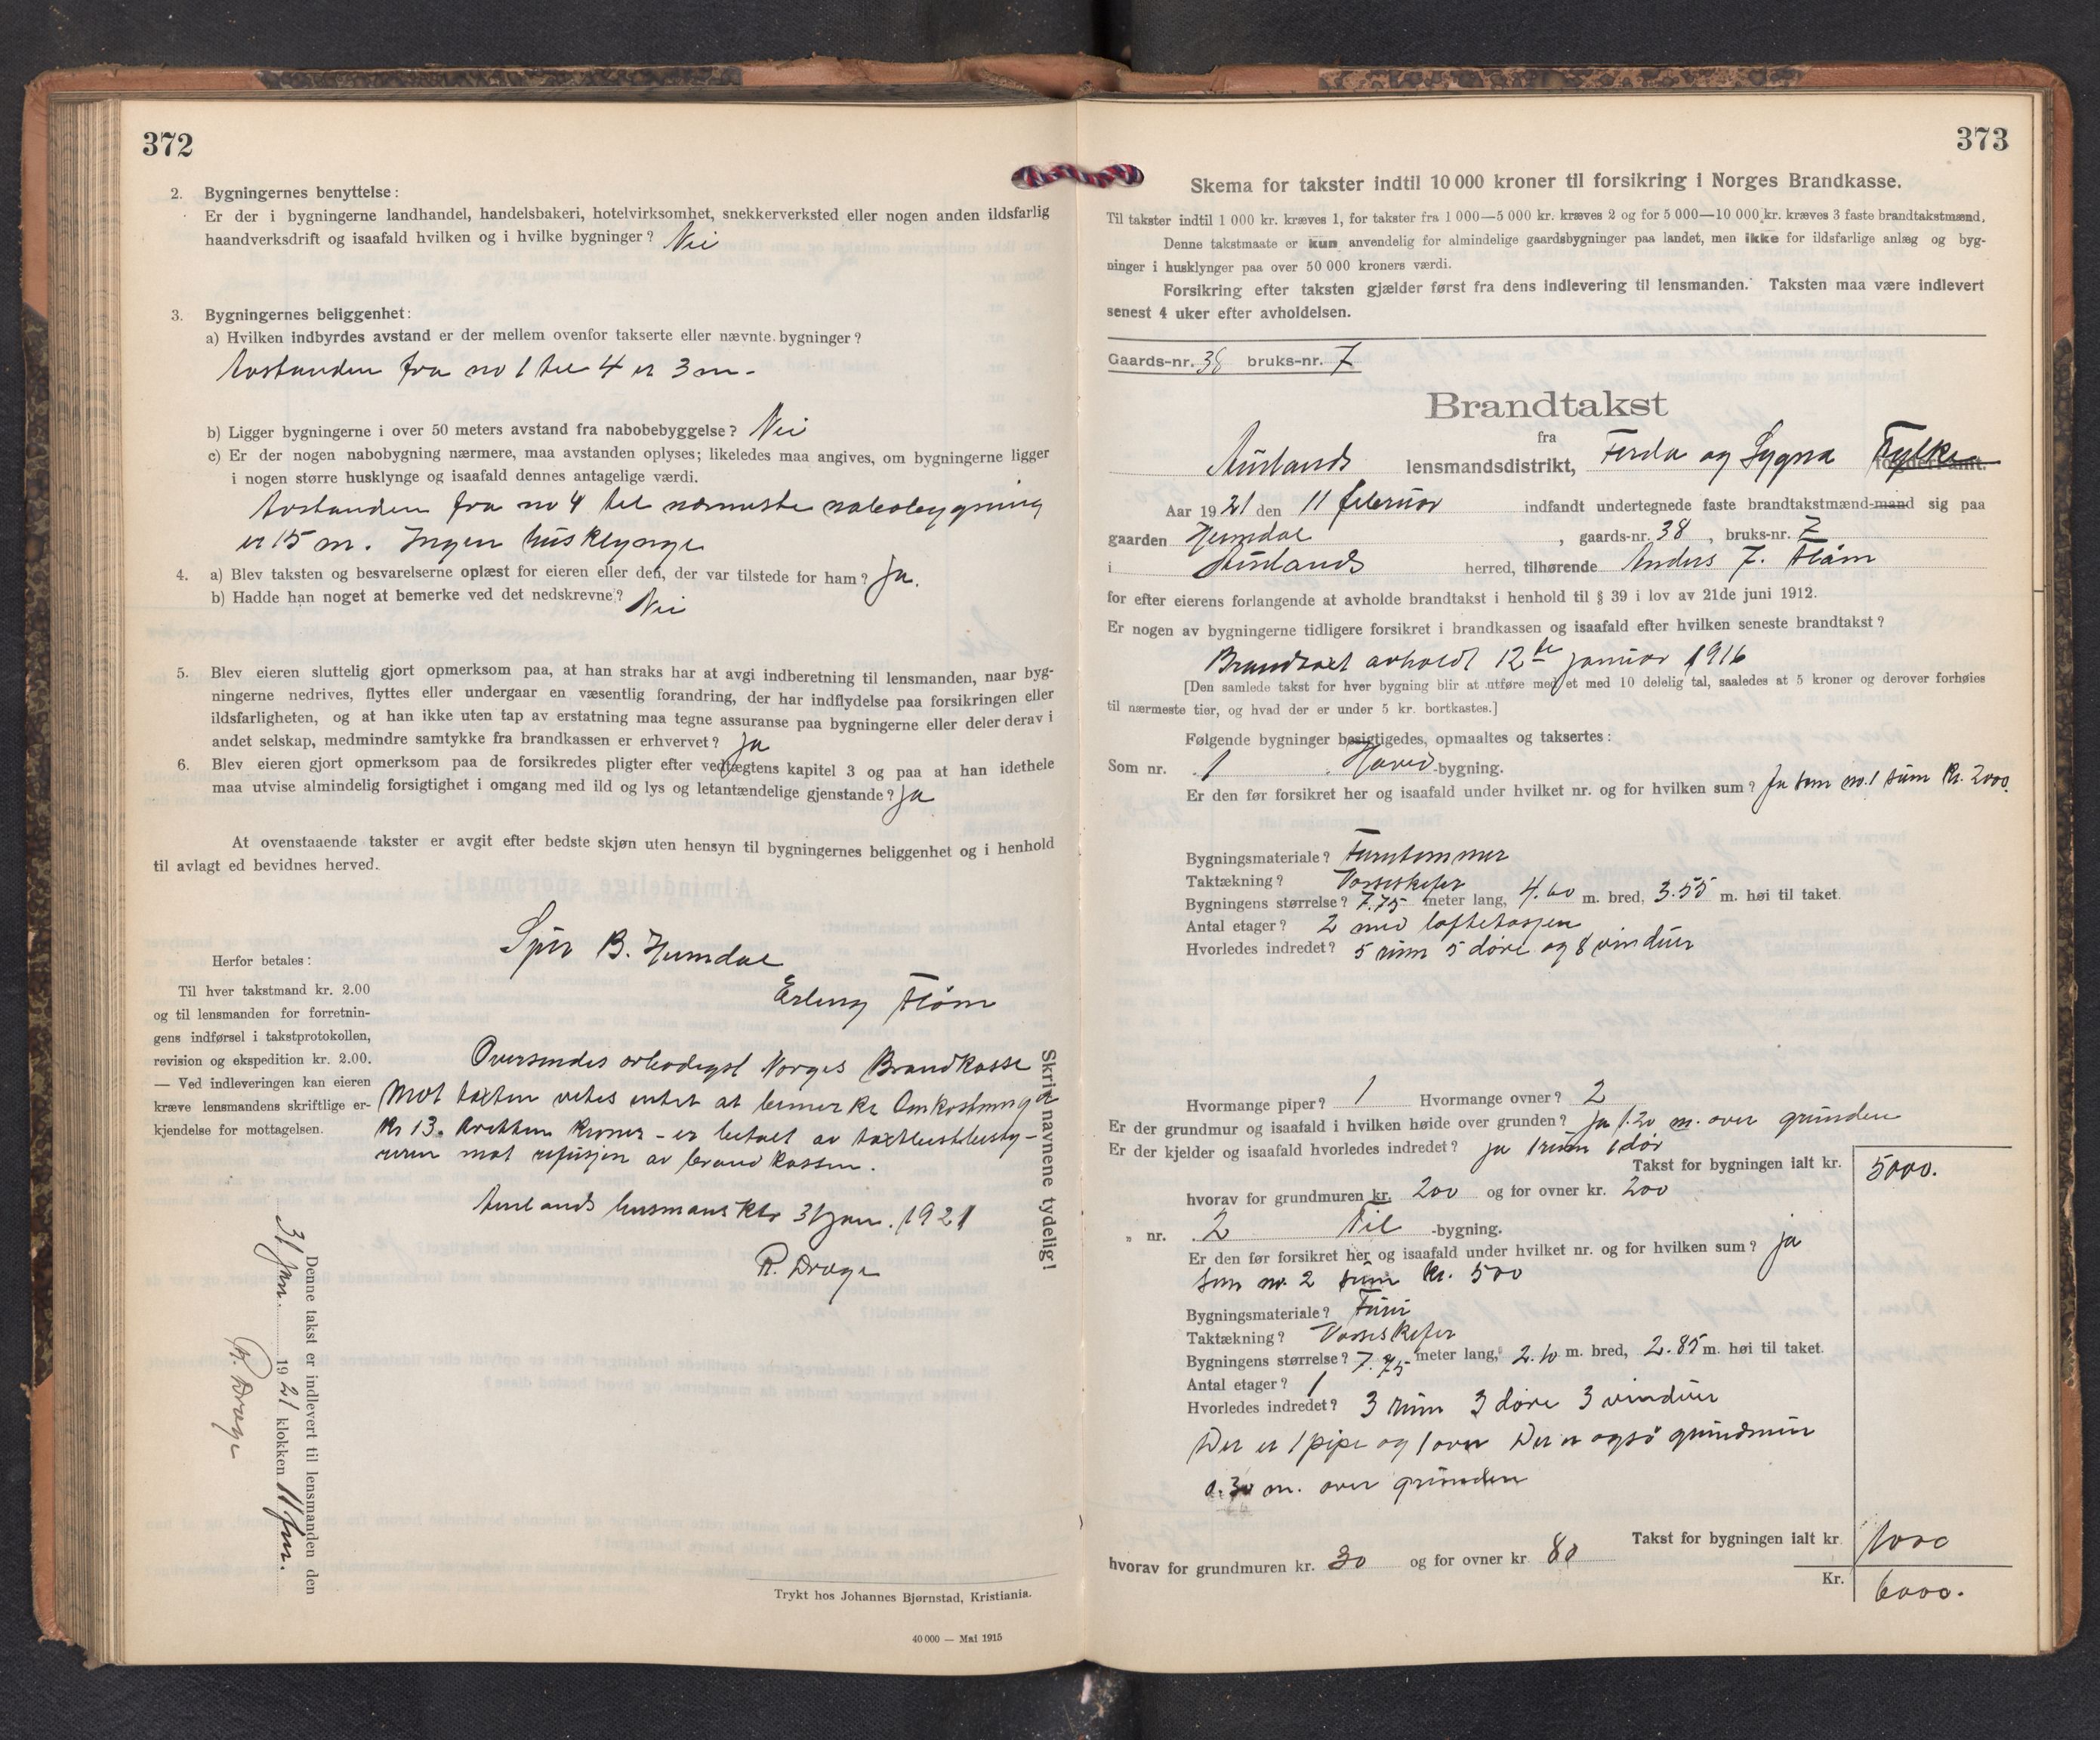 372
2. Bygningernes benyttelse:
Er der i bygningerne landhandel, handelsbakeri, hotelvirksomhet, snekkerverksted eller nogen anden ildsfarlig
haandverksdrift og isaafald hvilken og i hvilke bygninger? Nei
3. Bygningernes beliggenhet:
a) Hvilken indbyrdes avstand er der mellem ovenfor takserte eller nævnte bygninger?
Avstanden fra no 1 til 4 er 3 m.
b) Ligger bygningerne i over 50 meters avstand fra nabobebyggelse? Nei
c) Er der nogen nabobygning nærmere, maa avstanden oplyses; likeledes maa angives, om bygningerne ligger
i nogen større husklynge og isaafald dennes antagelige værdi.
Avstanden fra no 4 til nærmeste nabobygning
er 15 m. Ingen husklynge
4. a) Blev taksten og besvarelserne oplæst for eieren eller den, der var tilstede for ham? Ja.
b) Hadde han noget at bemerke ved det nedskrevne? Nei
5. Blev eieren sluttelig gjort opmerksom paa, at han straks har at avgi indberetning til lensmanden, naar byg-
ningerne nedrives, flyttes eller undergaar en væsentlig forandring, der har indflydelse paa forsikringen eller
ildsfarligheten, og at han ikke uten tap av erstatning maa tegne assuranse paa bygningerne eller deler derav i
andet selskap, medmindre samtykke fra brandkassen er erhvervet? Ja
6. Blev eieren gjort opmerksom paa de forsikredes pligter efter vedtægtens kapitel 3 og paa at han idethele
maa utvise almindelig forsigtighet i omgang med ild og lys og letantændelige gjenstande? Ja
At ovenstaaende takster er avgit efter bedste skjøn uten hensyn til bygningernes beliggenhet og i henhold
til avlagt ed bevidnes herved.
B. Hemdal
Erling Flåm
Herfor betales:
Til hver takstmand kr. 2.00
og til lensmanden for forretnin-
gens indførsel i takstprotokollen,
revision og ekspedition kr. 2.00.
— Ved indleveringen kan eieren
kræve lensmandens skriftlige er-
kjendelse for mottagelsen.
Oversendes ærbødigst Norges Brandkasse
Mot taxten vites intet at bemerke Omkostninger
Kr 13. kroner - er betalt av
mot refusjon av brandkassen.
Aurlands lensmans Ktr 31 jan. 1921
R. Drage
Skriv navnene tydelig!
Denne takst er indlevert til lensmanden den
31 jan. 1921 klokken 11 fm.
R. Drage
Trykt hos Johannes Bjørnstad, Kristiania.
40 000 — Mai 1915
373
Skema for takster indtil 10 000 kroner til forsikring i Norges Brandkasse.
Til takster indtil 1 000 kr. kræves 1, for takster fra 1 000—5 000 kr. kræves 2 og for 5 000—10 000 kr. kræves 3 faste brandtakstmænd.
Denne takstmaate er kun anvendelig for almindelige gaardsbygninger paa landet, men ikke for ildsfarlige anlæg og byg-
ninger i husklynger paa over 50 000 kroners værdi.
Forsikring efter taksten gjælder først fra dens indlevering til lensmanden. Taksten maa være indlevert
senest 4 uker efter avholdelsen.
Gaards-nr. 38 bruks-nr. 7
Brandtakst
fra
Aurlands lensmandsdistrikt, Firda og Sygna Fylke
Aar 1921 den 11 februar indfandt undertegnede faste brandtakstmænd-mand sig paa
gaarden Hemdal, gaards-nr. 38, bruks-nr. 7
i Aurlands herred, tilhørende Anders J. Flåm
for efter eierens forlangende at avholde brandtakst i henhold til § 39 i lov av 21de juni 1912.
Er nogen av bygningerne tidligere forsikret i brandkassen og isaafald efter hvilken seneste brandtakst?
Brandtaxt avholdt 12te januar 1916
[Den samlede takst for hver bygning blir at utføre med et med 10 delelig tal, saaledes at 5 kroner og derover forhøies
til nærmeste tier, og hvad der er under 5 kr. bortkastes.]
Følgende bygninger besigtigedes, opmaaltes og taksertes:
Som nr. 1 Hoved-bygning.
Er den før forsikret her og isaafald under hvilket nr. og for hvilken sum? Ja som no. 1 sum Kr. 2000.
Bygningsmateriale? Furutømmer
Taktækning? Vosseskifer
Bygningens størrelse? 7.75 meter lang, 4.60 m. bred, 3.55 m. høi til taket.
Antal etager? 2 med loftetasjen
Hvorledes indredet? 5 rum 5 døre og 8 vinduer
Hvormange piper? 1 Hvormange ovner? 2
Er der grundmur og isaafald i hvilken høide over grunden? Ja 1.20 m. over grunden
Er der kjelder og isaafald hvorledes indredet? ja 1 rum 1 dør
Takst for bygningen ialt kr. 5000.
hvorav for grundmuren kr. 200 og for ovner kr. 200
„ nr. 2 Til-bygning.
Er den før forsikret her og isaafald under hvilket nr. og for hvilken sum? ja
som no. 2 sum Kr. 500
Bygningsmateriale? Furu
Taktækning? Vosseskifer
Bygningens størrelse? 7.75 meter lang, 2.10 m. bred, 2.85 m. høi til taket.
Antal etager? 1
Hvorledes indredet? 3 rum 3 døre 3 vinduer
Der er 1 pipe og 1 ovn Der er også grundmur
0.30 m. over grunden
Takst for bygningen ialt kr 1000
hvorav for grundmuren kr. 30 og for ovner kr 80
Kr. 6000.